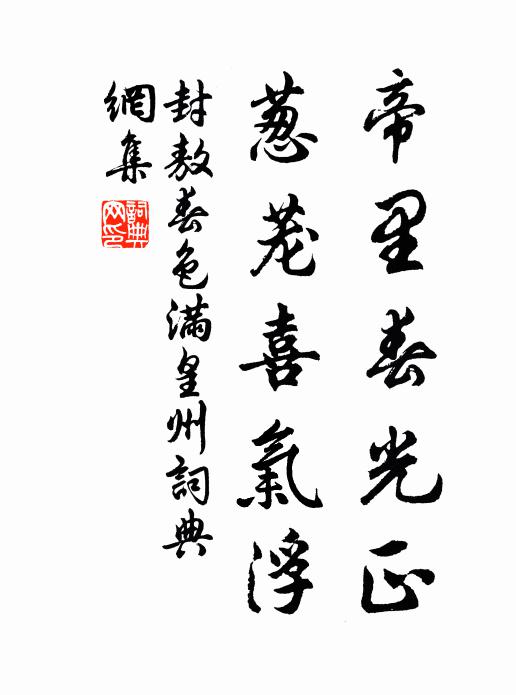 帝里春光正
葱茏喜氣浮
封敖春色滿皇州詞典
網集
詞典網印